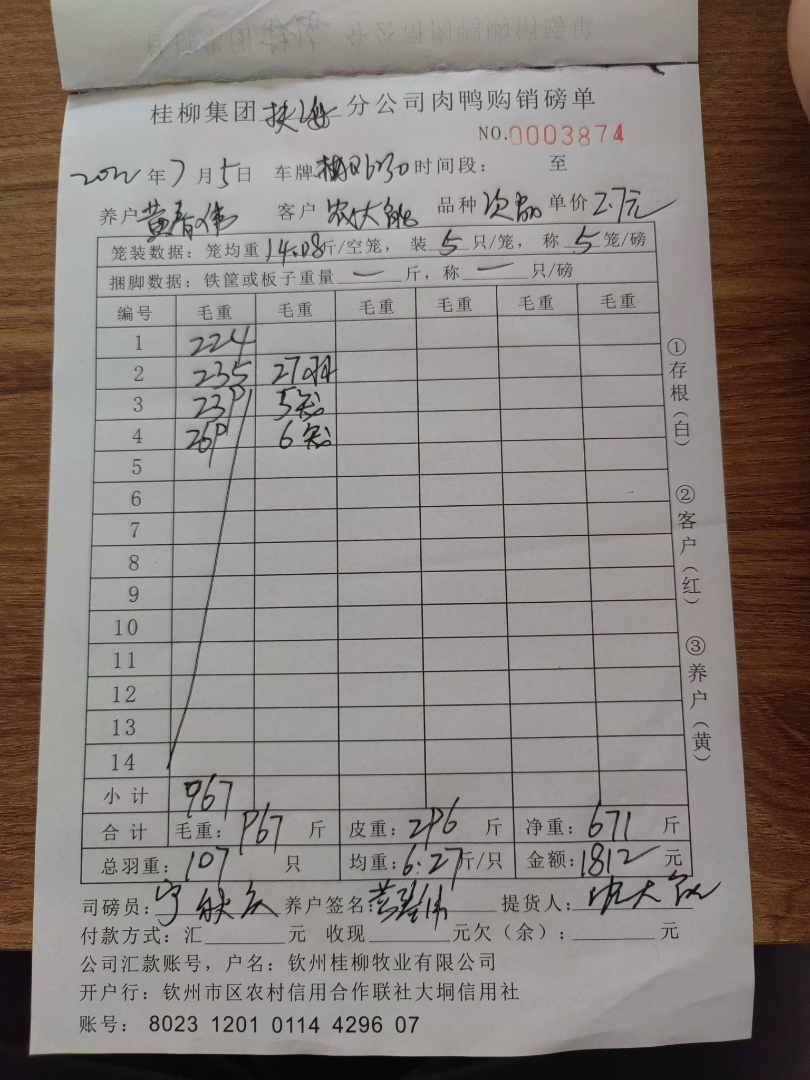 桂柳集团扶海分公司肉鸭购销磅单
NO.0003874
2022年7月5日 车牌 6230 时间段： 至
养户 黄春伟 客户 农大能 品种 次品 单价 2.7元
笼装数据：笼均重14.08斤/空笼，装5只/笼，称5笼/磅
捆脚数据：铁筐或板子重量一斤，称一只/磅
编号 毛重 毛重 毛重 毛重 毛重 毛重
1 224
2 235 27羽
3 239 5笼
4 269 6笼
5
6
7
8
9
10
11
12
13
14
小计 967
合计 毛重：967斤 皮重：296斤 净重：671斤
总羽重：107只 均重：6.27斤/只 金额：1812元
司磅员： 养户签名： 提货人：
付款方式：汇 元 收现 元欠（余）： 元
公司汇款账号，户名：钦州桂柳牧业有限公司
开户行：钦州市区农村信用合作联社大垌信用社
账号： 8023 1201 0114 4296 07
①存根（白）
②客户（红）
③养户（黄）